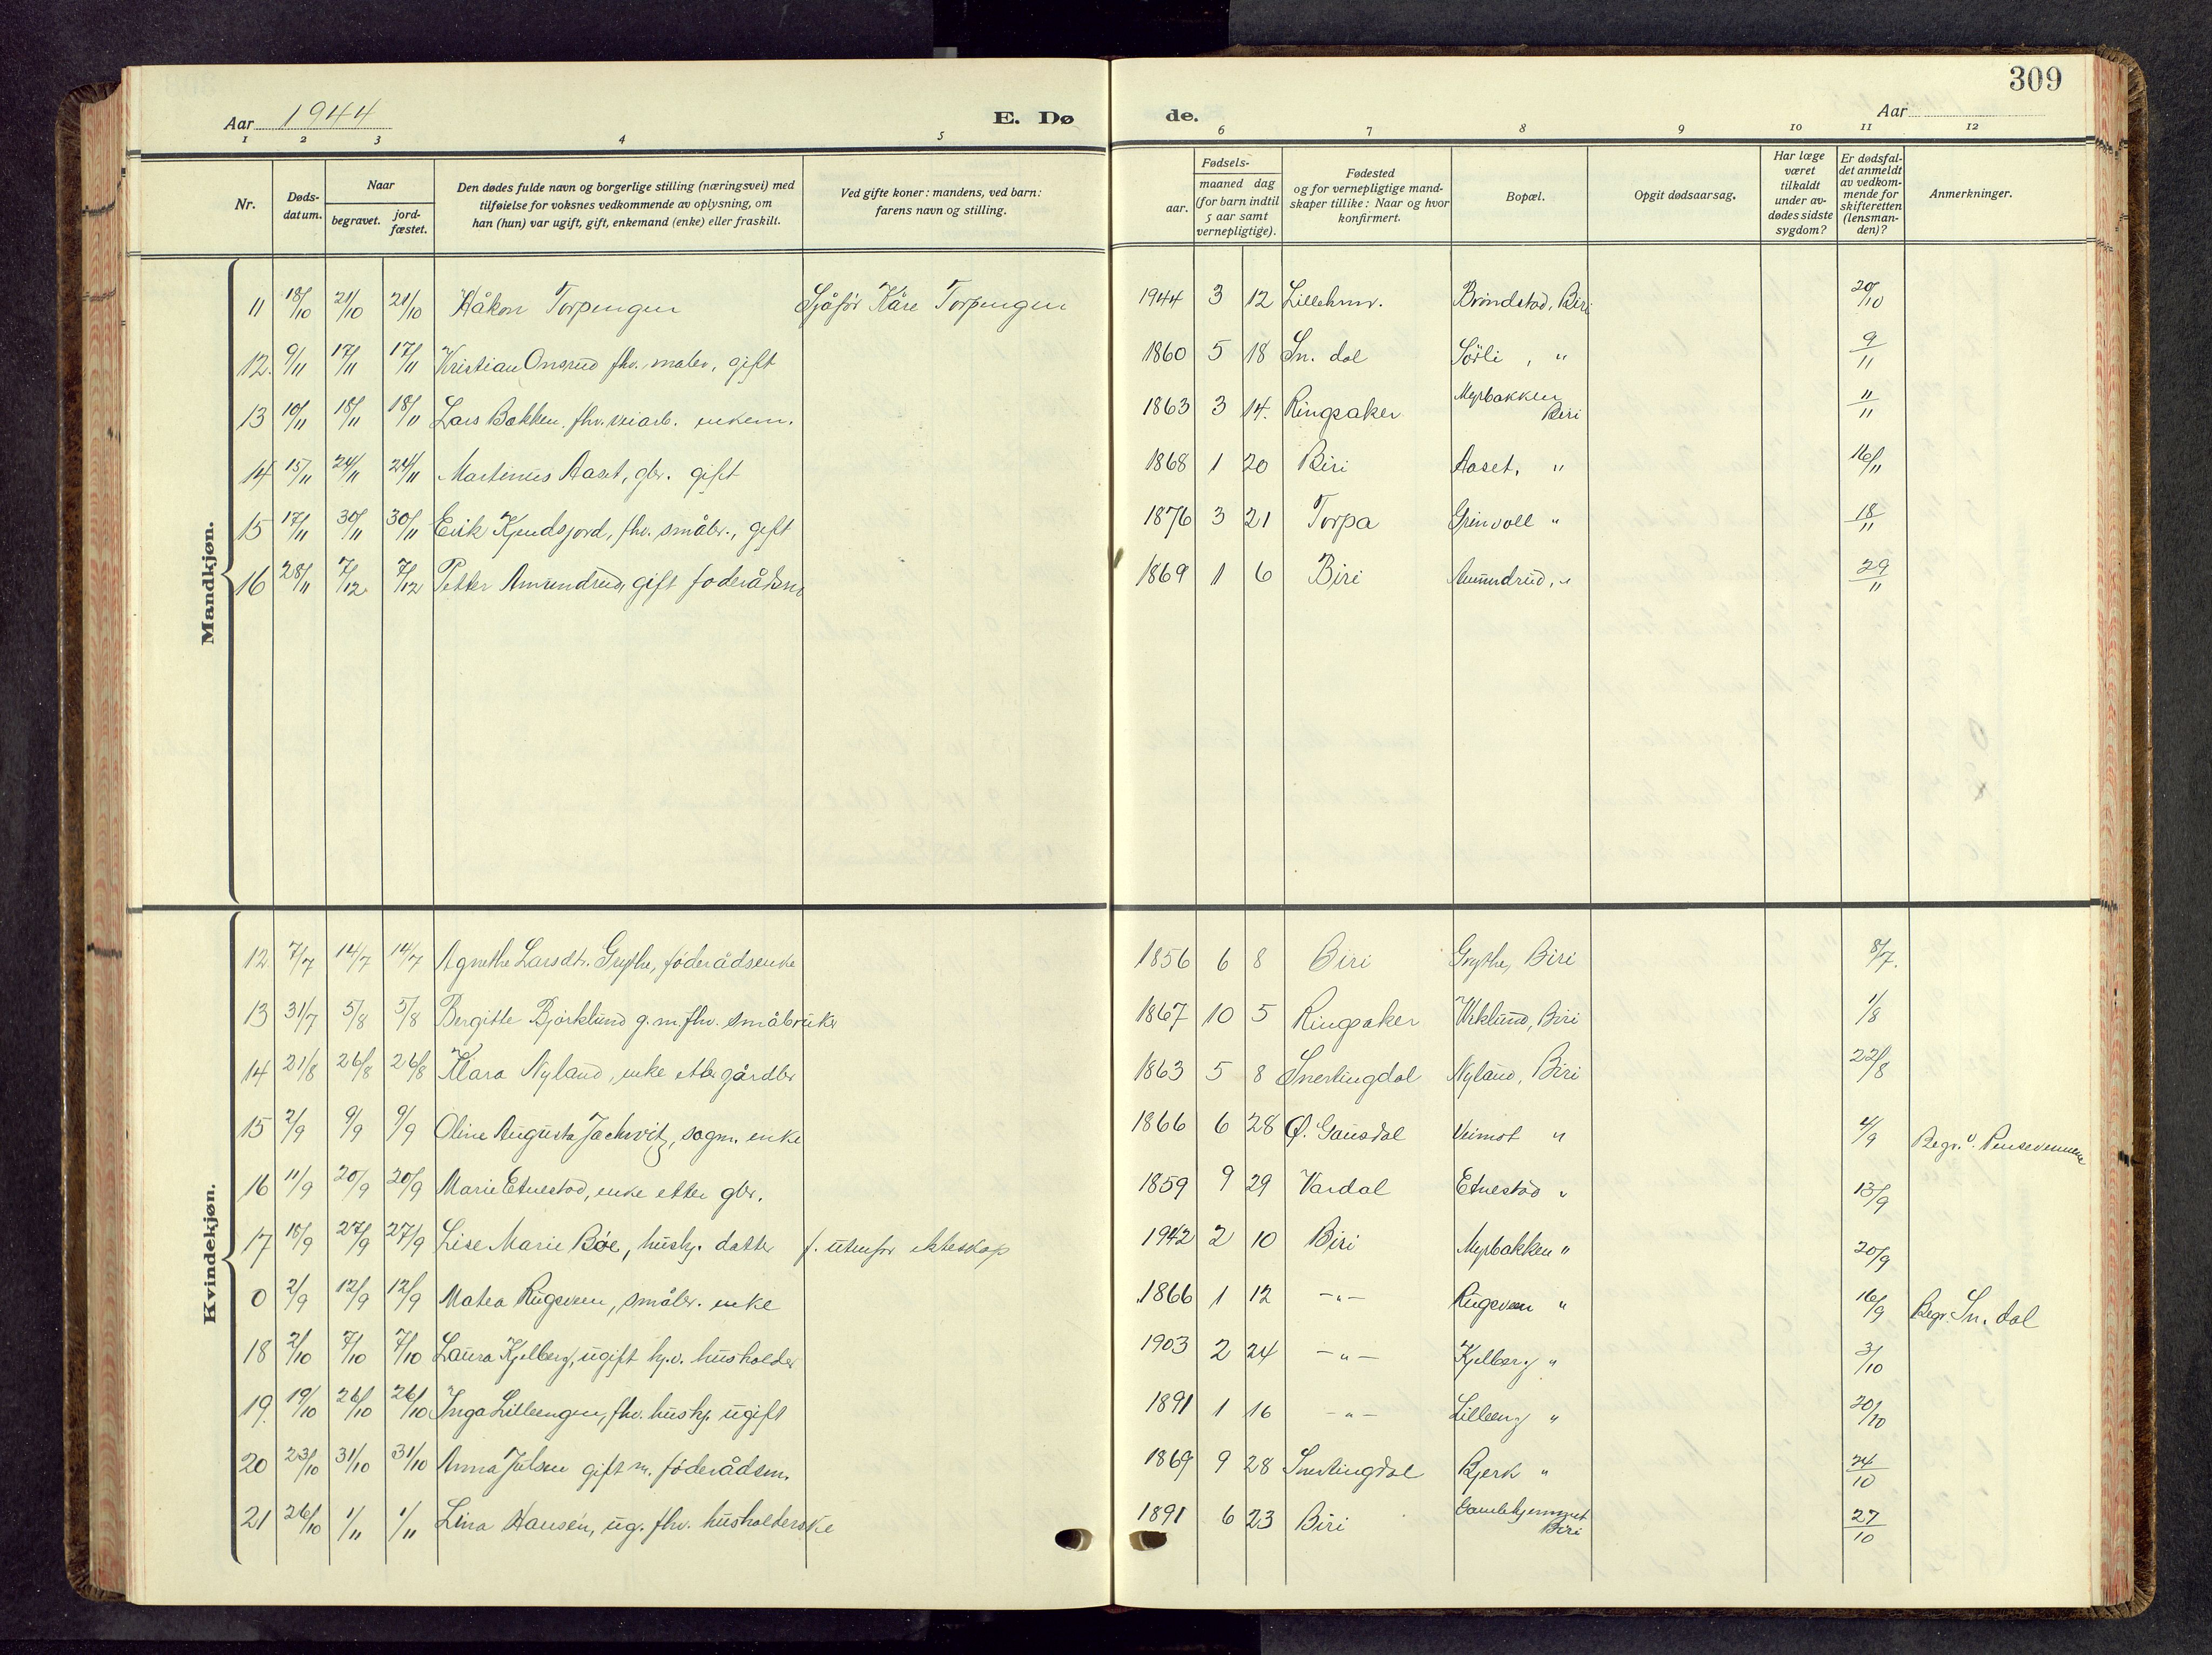 309
Aar 1944 E. Dø de. Aar
1 2 3 4 5 6 7 8 9 10 11 12
Nr. Døds-datum. Naar begravet. jord-fæstet. Den dødes fulde navn og borgerlige stilling (næringsvei) med tilføielse for voksnes vedkommende av oplysning, om han (hun) var ugift, gift, enkemand (enke) eller fraskilt. Ved gifte koner: mandens, ved barn: farens navn og stilling. Fødsels- aar. maaned dag (for barn indtil 5 aar samt vernepligtige). Fødested og for vernepligtige mandskaper tillike: Naar og hvor konfirmert. Bopæl. Opgit dødsaarsag. Har læge været tilkaldt under avdødes sidste sygdom? Er dødsfaldet anmeldt av vedkommende for skifteretten (lensmanden)? Anmerkninger.
Mandkjøn.
11 18/10 21/10 21/10 Håkon Torpengen Sjåfør Kåre Torpengen 1944 3 12 Lillehmr. Bröndstad, Biri 20/10
12. 9/11 17/11 17/11 Kristian Onsrud fhv. maler, gift 1860 5 18 Sn. dal Sörli, " 9/11
13 10/11 18/11 18/11 Lars Bakken, fhv. veiarb. enkem. 1863 3 14. Ringsaker Myrbakken Biri 11/11
14 15/11 24/11 24/11 Martinus Aaset, gbr. gift 1868 1 20 Biri Aaset, " 16/11
15 17/11 30/11 30/11 Eirik Kjendsjord, fhv. småbr., gift 1876 3 21 Torpa Grinvoll " 18/11
16 28/11 7/12 7/12 Petter Amundrud, gift foderådsm. 1869 1 6 Biri Amundrud, " 29/11
Kvindekjøn.
12 7/7 14/7 14/7 Agnethe Larsdtr. Grythe, föderådsenke 1856 6 8 Biri Grythe, Biri 8/7.
13 31/7 5/8 5/8 Bergitte Björklund g. m. fhv. småbruker 1867 10 5 Ringsaker Viklund, Biri 1/8
14 21/8 26/8 26/8 Klara Nyland, enke etter gårdbr 1863 5 8 Snertingdal Nyland, Biri 22/8
15 2/9 9/9 9/9 Oline Augusta Jachwitz, sagm. enke 1866 6 28 Ø. Gausdal Veimot " 4/9 Begr. v. Pinsevennene
16 11/9 20/9 20/9 Marie Etnestad, enke etter gbr. 1859 9 29 Vardal Etnestad " 13/9
17 18/9 27/9 27/9 Lise Marie Böe, huskj. datter f. utenfor ekteskap 1942 2 10 Biri Myrbakken " 20/9
0 2/9 12/9 12/9 Matea Rugsveen, småbr. enke 1866 1 12 -"- Rugsveen " 16/9 Begr. Sn. dal
18 2/10 7/10 7/10 Laura Kjelberg, ugift hj.v. husholder 1903 2 24 -"- Kjelberg " 3/10
19. 19/10 26/10 26/10 Inga Lilleengen, fhv. huskj. ugift 1891 1 16 -"- Lilleeng " 20/10
20 23/10 31/10 31/10 Anna Julsen gift m. föderådsm. 1869 9 28 Snertingdal Bjerk " 24/10
21 26/10 1/11 1/11 Lina Hansen, ug. fhv. husholderske 1891 6 23 Biri Gamlehjemmet Biri 27/10